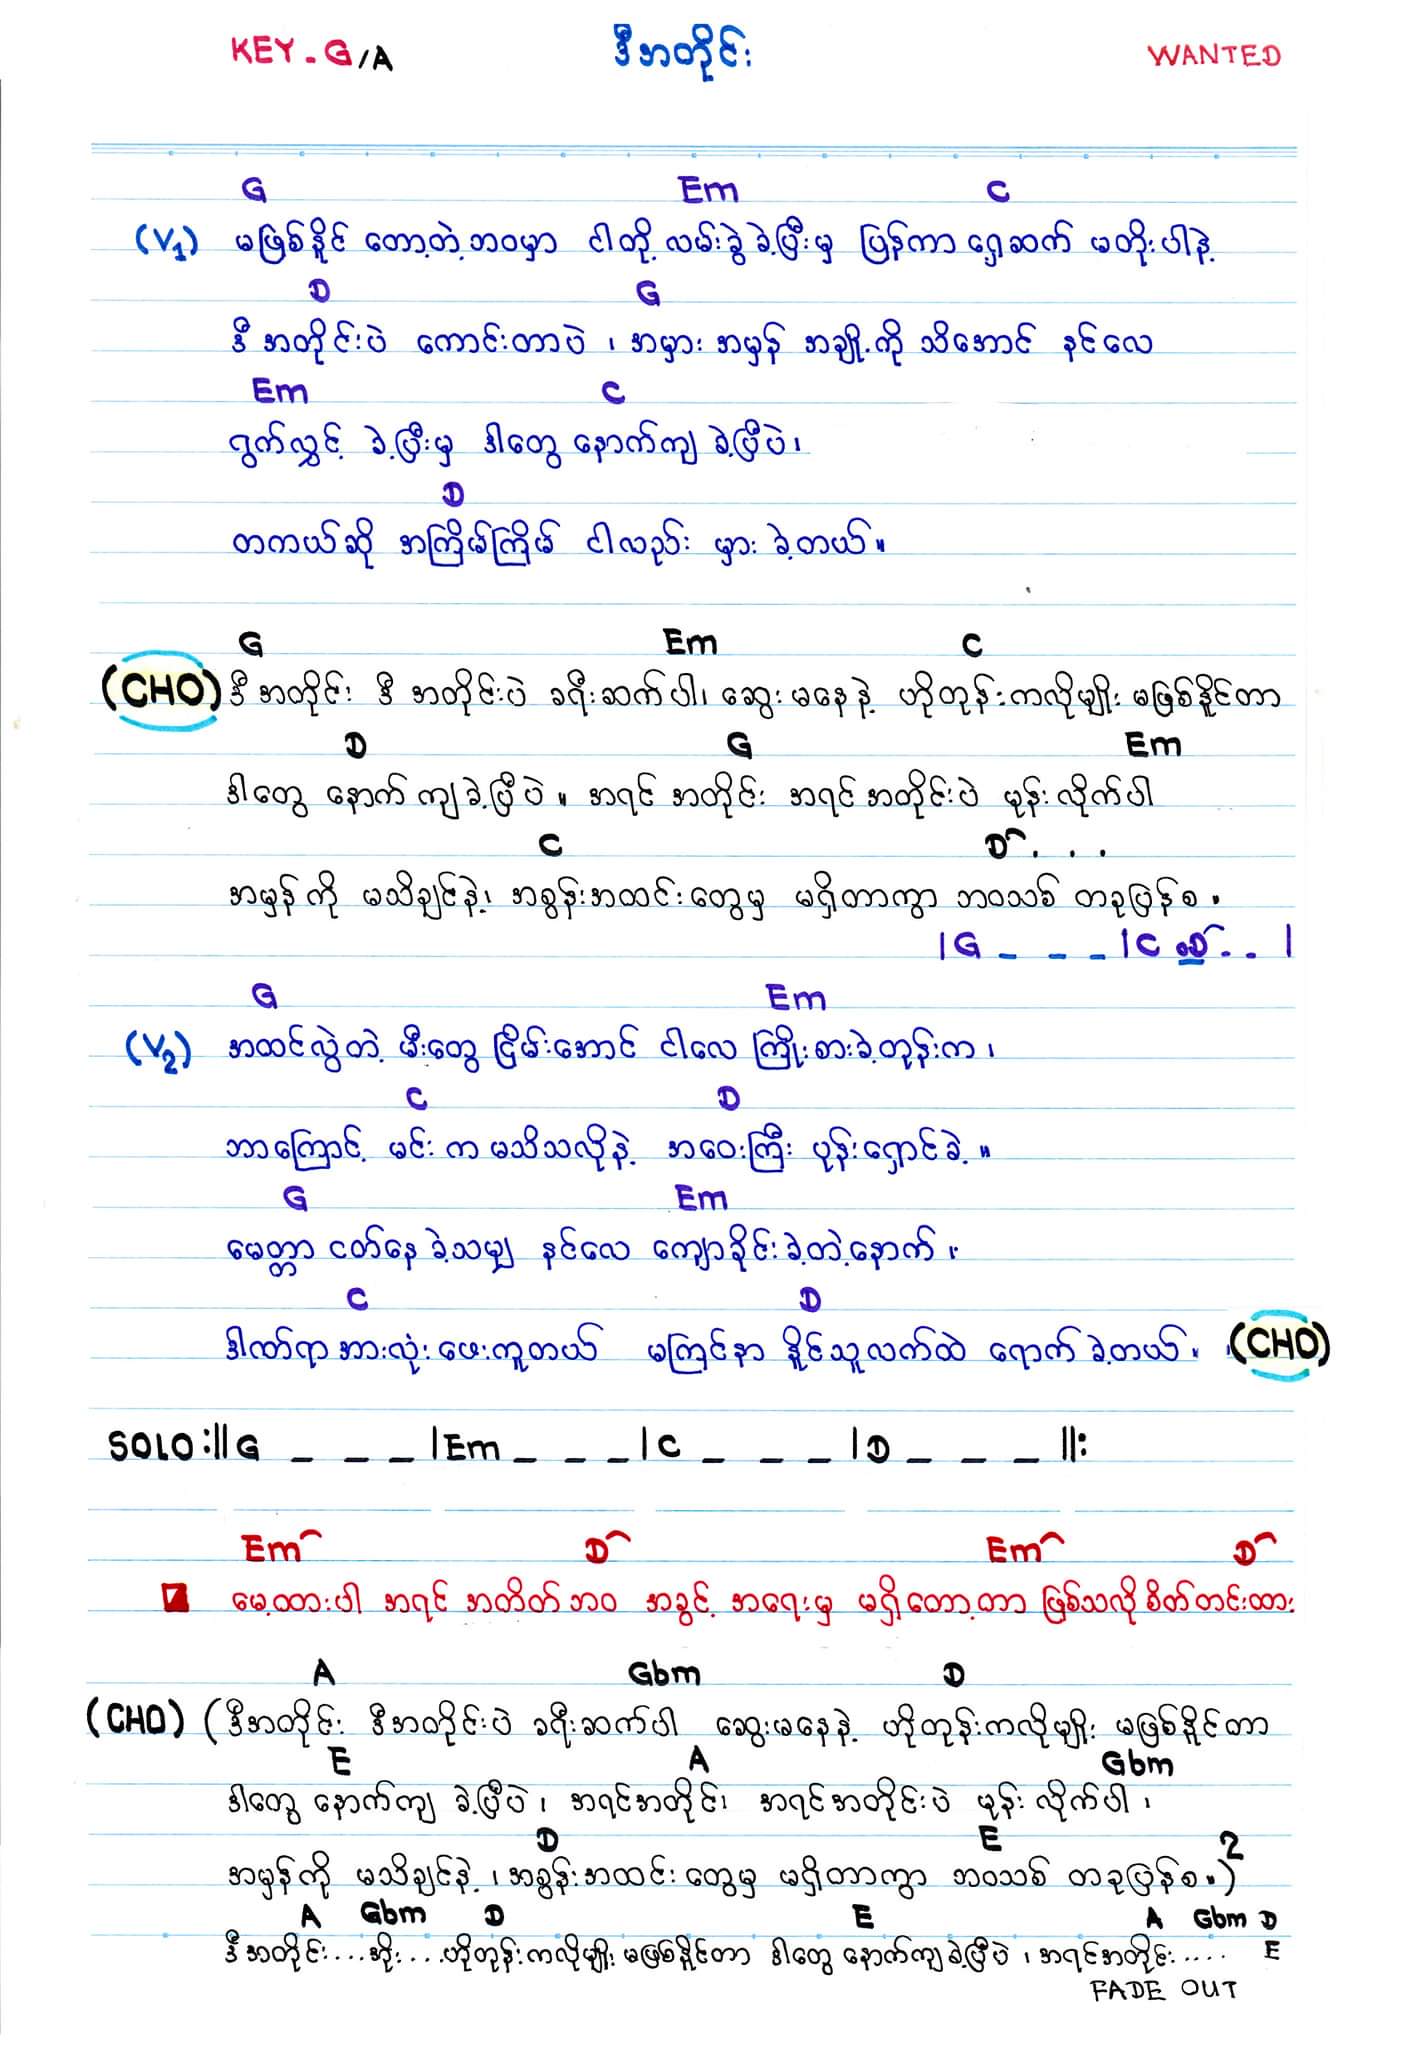 KEY - G/A ဒီအတိုင်း WANTED
G Em C
(V1) မဖြစ်နိုင် တော့တဲ့ဘဝမှာ ငါတို့ လမ်းခွဲခဲ့ပြီးမှ ပြန်ကာရှေ့ဆက် မတိုးပါနဲ့
D G
ဒီအတိုင်းပဲ ကောင်းတာပဲ ၊ အမှား အမှန် အချို့ကို သိအောင် နင်လေ
Em C
ရွက်လွှင့် ခဲ့ပြီးမှ ဒါတွေ နောက်ကျ ခဲ့ပြီပဲ၊
D
တကယ်ဆို အကြိမ်ကြိမ် ငါလည်း မှား ခဲ့တယ်။
G Em C
(CHO) ဒီအတိုင်း ဒီအတိုင်းပဲ ခရီးဆက်ပါ၊ ဆွေးမနေနဲ့ ဟိုတုန်းကလိုမျိုး မဖြစ်နိုင်တာ
D G Em
ဒါတွေ နောက်ကျခဲ့ပြီပဲ ။ အရင်အတိုင်း အရင်အတိုင်းပဲ မုန်းလိုက်ပါ
C D . . .
အမှန်ကို မသိချင်နဲ့၊ အစွန်းအထင်းတွေမှ မရှိတာကွာ ဘဝသစ် တခုပြန်စ ။
|G _ _ _|C D . . |
G Em
(V2) အထင်လွဲတဲ့ မီးတွေ ငြိမ်းအောင် ငါလေ ကြိုးစားခဲ့တုန်းက ၊
C D
ဘာကြောင့် မင်းက မသိသလိုနဲ့ အဝေးကြီး ပုန်းရှောင်ခဲ့ ။
G Em
မေတ္တာ ငတ်နေခဲ့သမျှ နင်လေ ကျောခိုင်းခဲ့တဲ့နောက် ။
C D
ဒါဏ်ရာ အားလုံး ပေးကူတယ် မကြင်နာ နိုင်သူလက်ထဲ ရောက်ခဲ့တယ်။ (CHO)
SOLO :||G _ _ _|Em _ _ _|C _ _ _|D _ _ _||:
Em D Em D
မေ့ထားပါ အရင် အတိတ်ဘဝ အခွင့် အရေးမှ မရှိတော့တာ ဖြစ်သလိုစိတ်တင်းထား
A Gbm D
(CHO) (ဒီအတိုင်း ဒီအတိုင်းပဲ ခရီးဆက်ပါ ဆွေးမနေနဲ့ ဟိုတုန်းကလိုမျိုး မဖြစ်နိုင်တာ
E A Gbm
ဒါတွေ နောက်ကျ ခဲ့ပြီပဲ ၊ အရင်အတိုင်း၊ အရင်အတိုင်းပဲ မုန်းလိုက်ပါ ၊
D E
အမှန်ကို မသိချင်နဲ့ ၊ အစွန်းအထင်းတွေမှ မရှိတာကွာ ဘဝသစ် တခုပြန်စ ။) 2
A Gbm D E A Gbm D
ဒီအတိုင်း....အိုး....ဟိုတုန်းကလိုမျိုး မဖြစ်နိုင်တာ ဒါတွေ နောက်ကျခဲ့ပြီပဲ ၊ အရင်အတိုင်း.... E
FADE OUT